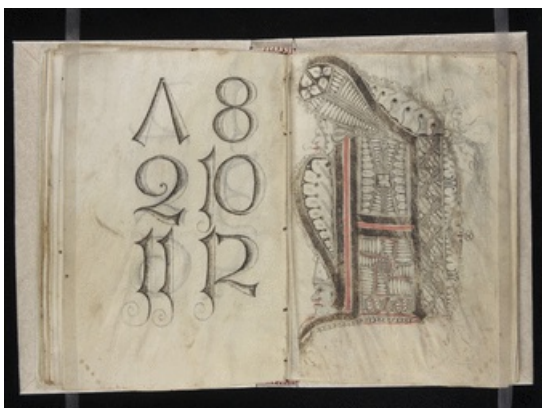 7 8
9 10
11 12